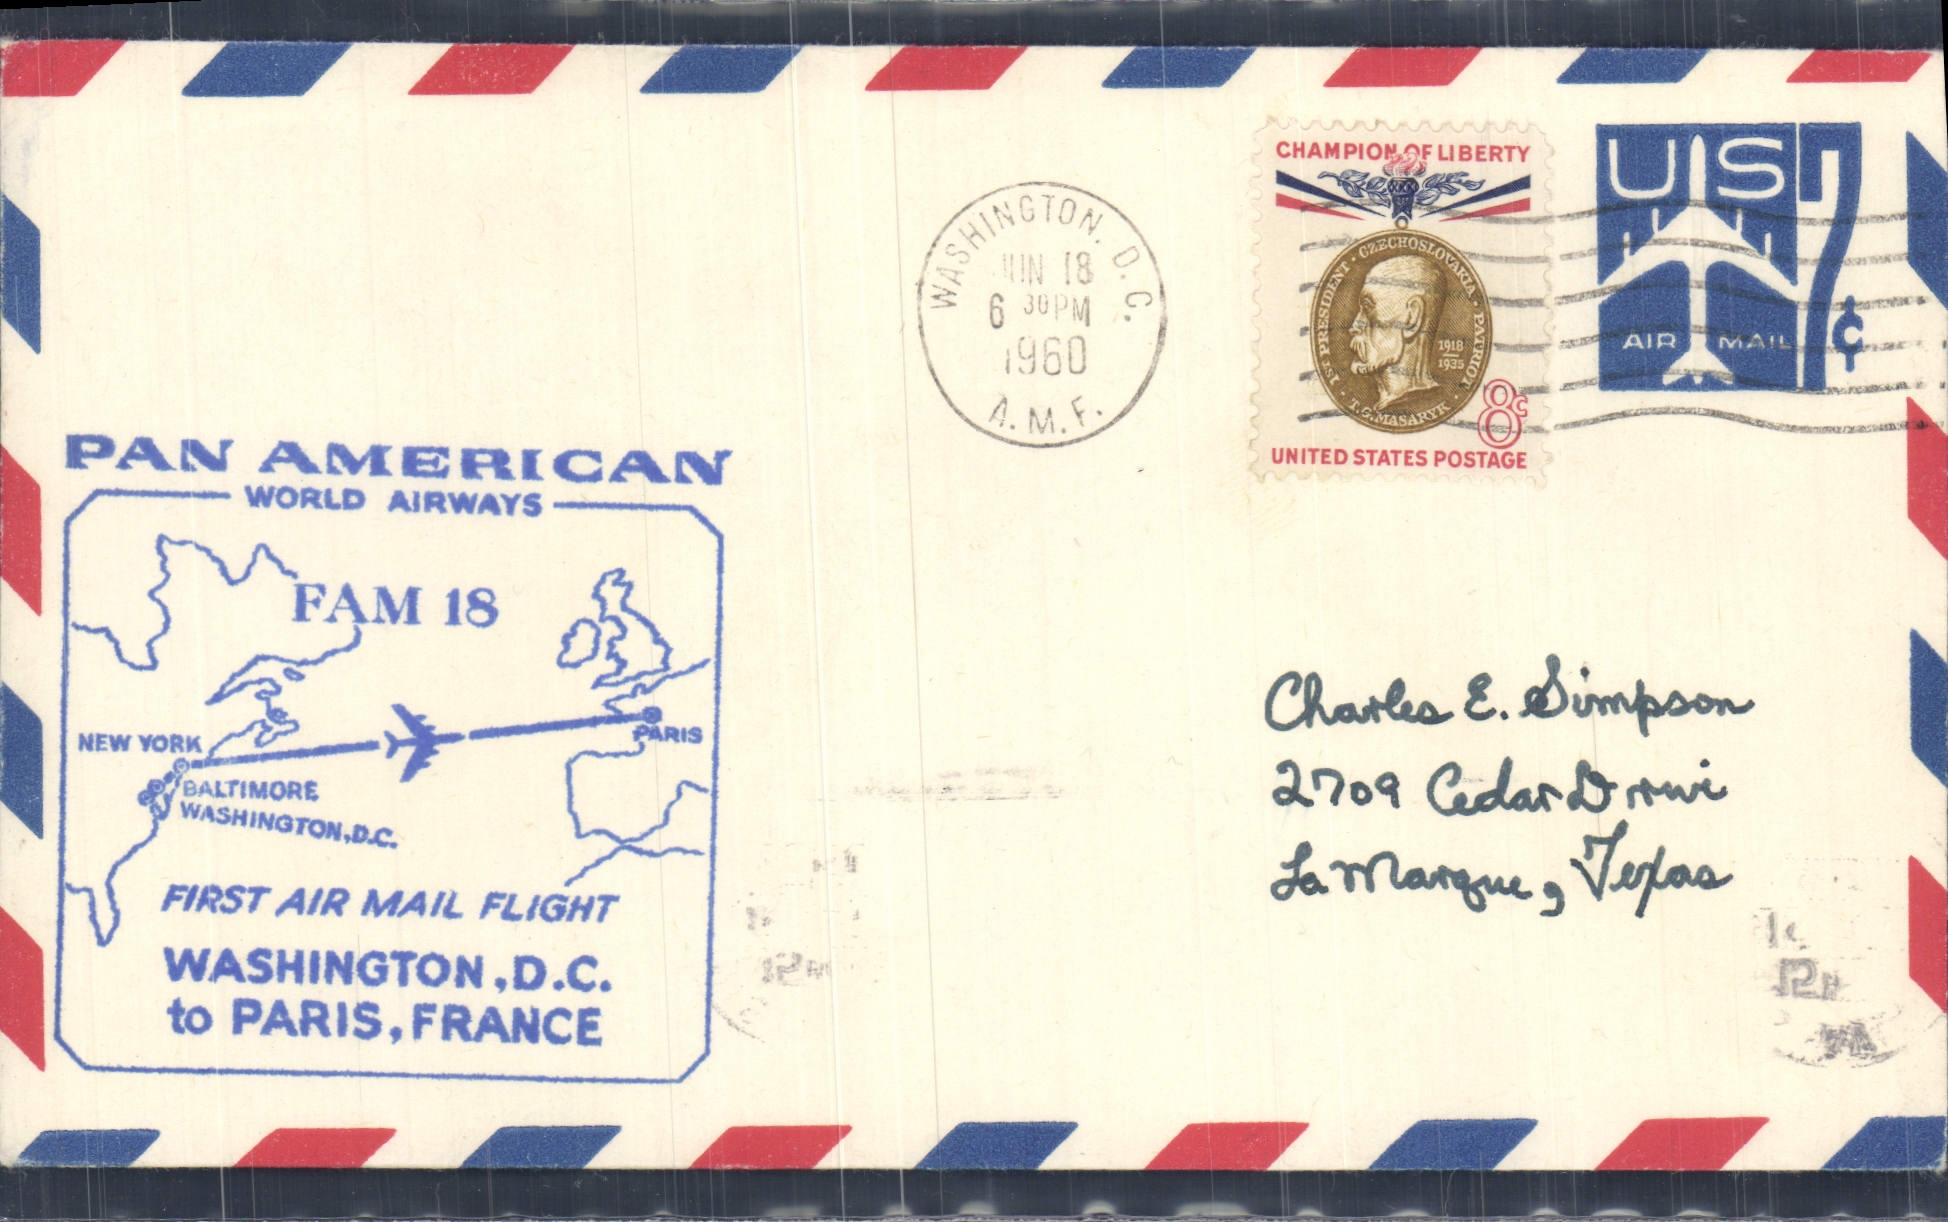 CHAMPION OF LIBERTY
1ST PRESIDENT · CZECHOSLOVAKIA · PATRIOT · T.G. MASARYK ·
1918
1935
8c
UNITED STATES POSTAGE
US 7c
AIR MAIL
WASHINGTON, D.C.
JUN 18
6 30 PM
1960
A.M.F.
PAN AMERICAN
WORLD AIRWAYS
FAM 18
NEW YORK
PARIS
BALTIMORE
WASHINGTON, D.C.
FIRST AIR MAIL FLIGHT
WASHINGTON, D.C.
to PARIS, FRANCE
Charles E. Simpson
2709 Cedar Drive
La Marque, Texas